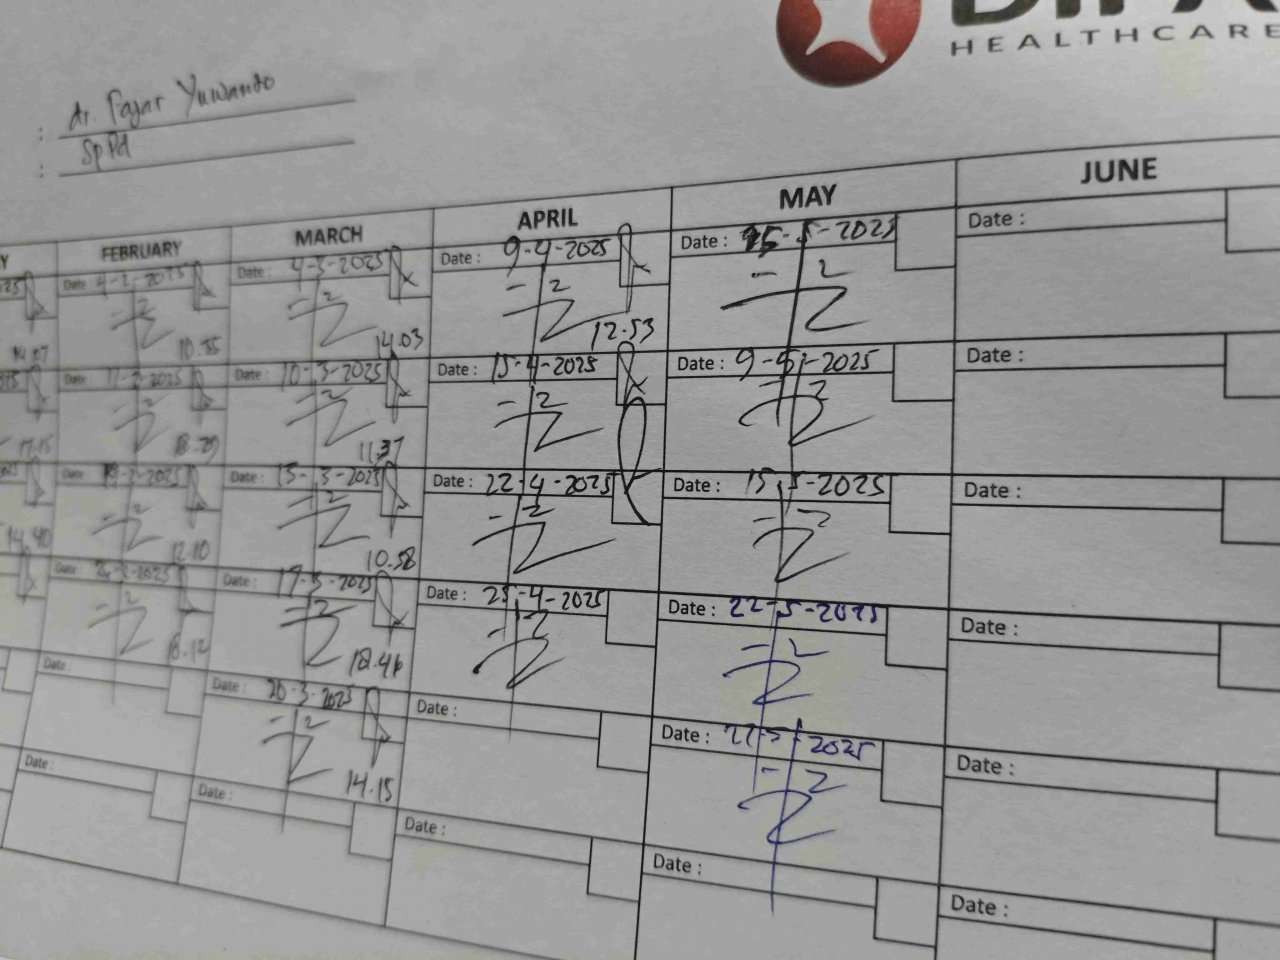 HEALTHCARE
: dr. Fajar Yuwando
: SpPd
FEBRUARY MARCH APRIL MAY JUNE
Date 4-2-2025 Date : 4-3-2025 Date : 9-4-2025 Date : 5-2025 Date :
10.55 14.03 12.53
Date 2025 Date : 10-3-2025 Date : 15-4-2025 Date : 9-5-2025 Date :
17.15 18.29 11.37
Date 2025 Date : 13-3-2025 Date : 22-4-2025 Date : 15-5-2025 Date :
14.40 12.10 10.58
Date 2025 Date : 17-3-2025 Date : 25-4-2025 Date : 22-5-2025 Date :
18.12 18.46
Date : Date : 20-3-2025 Date : Date : 27-5-2025 Date :
14.15
Date : Date : Date : Date : Date :